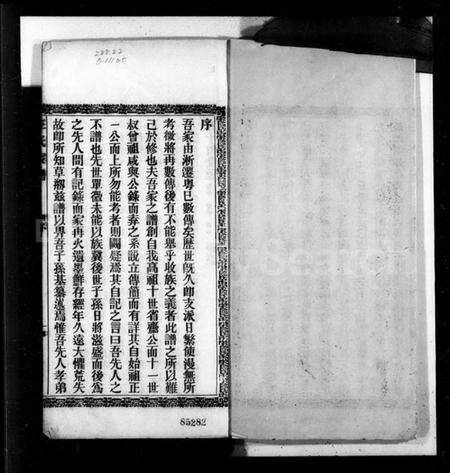 序
吾家由浙遷粵已數傳矣歷世旣久卽支派日繁使漫無所
考徵將再數傳後有不能舉乎收族之義者此譜之所以難
已於修也夫吾家之譜創自我高祖十世省齋公而十一世
叔曾祖咸與公錄而弆之系說立傳簡而有詳其自始祖正
一公而上所勿能考者則闕疑焉其自記之言曰吾先人之
不譜也先世單微未能以族冀後世子孫日將滋盛而後為
之先人間有記錄而家再火遺墨鮮存經年久遠大懼荒失
故卽所知草搦茲譜以畀吾子孫基纂述焉惟吾先人孝弟
85282